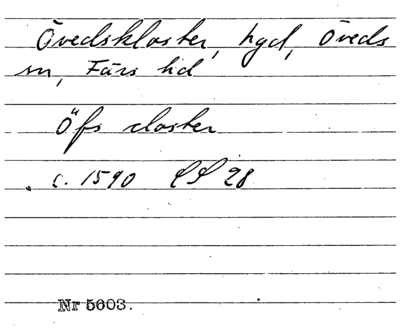 Övedskloster, hgd, Öveds
sn, Färs hd
Öfs closter
. c. 1590 LS 28
Nr 5603.